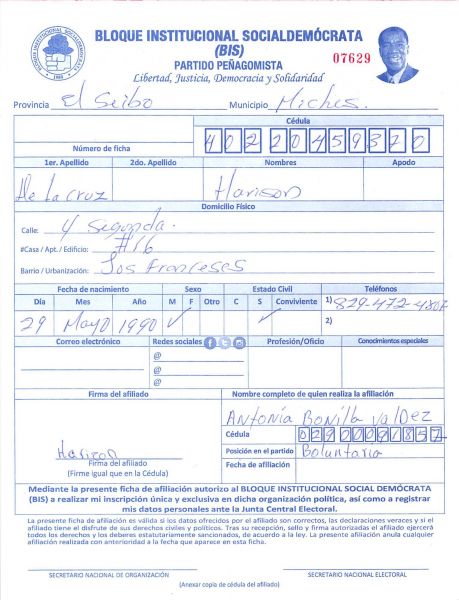 BLOQUE INSTITUCIONAL SOCIALDEMÓCRATA
(BIS)
PARTIDO PEÑAGOMISTA
Libertad, Justicia, Democracia y Solidaridad
07629
Provincia El Seibo Municipio Miches.
Cédula
Número de ficha 40220459370
1er. Apellido 2do. Apellido Nombres Apodo
De La Cruz Harison
Domicilio Físico
Calle: 4 Segonda.
#Casa / Apt. / Edificio: #16
Barrio / Urbanización: Los Franceses
Fecha de nacimiento Sexo Estado Civil Teléfonos
Día Mes Año M F Otro C S Conviviente 1) 829-472-4807
29 Mayo 1990 ✓ ✓ 2)
Correo electrónico Redes sociales Profesión/Oficio Conocimientos especiales
@
@
@
Firma del afiliado Nombre completo de quien realiza la afiliación
Antonia Bonilla Valdez
Cédula 02920091857
Harison Posición en el partido Boluntaria
Firma del afiliado Fecha de afiliación
(Firme igual que en la Cédula)
Mediante la presente ficha de afiliación autorizo al BLOQUE INSTITUCIONAL SOCIAL DEMÓCRATA
(BIS) a realizar mi inscripción única y exclusiva en dicha organización política, así como a registrar
mis datos personales ante la Junta Central Electoral.
La presente ficha de afiliación es válida si los datos ofrecidos por el afiliado son correctos, las declaraciones veraces y si el
afiliado tiene el disfrute de sus derechos civiles y políticos. Tras su recepción, sello y firma autorizadas el afiliado ejercerá
todos los derechos y los deberes estatutariamente sancionados, de acuerdo a la ley. La presente afiliación anula cualquier
afiliación realizada con anterioridad a la fecha que aparece en esta ficha.
SECRETARIO NACIONAL DE ORGANIZACIÓN SECRETARIO NACIONAL ELECTORAL
(Anexar copia de cédula del afiliado)